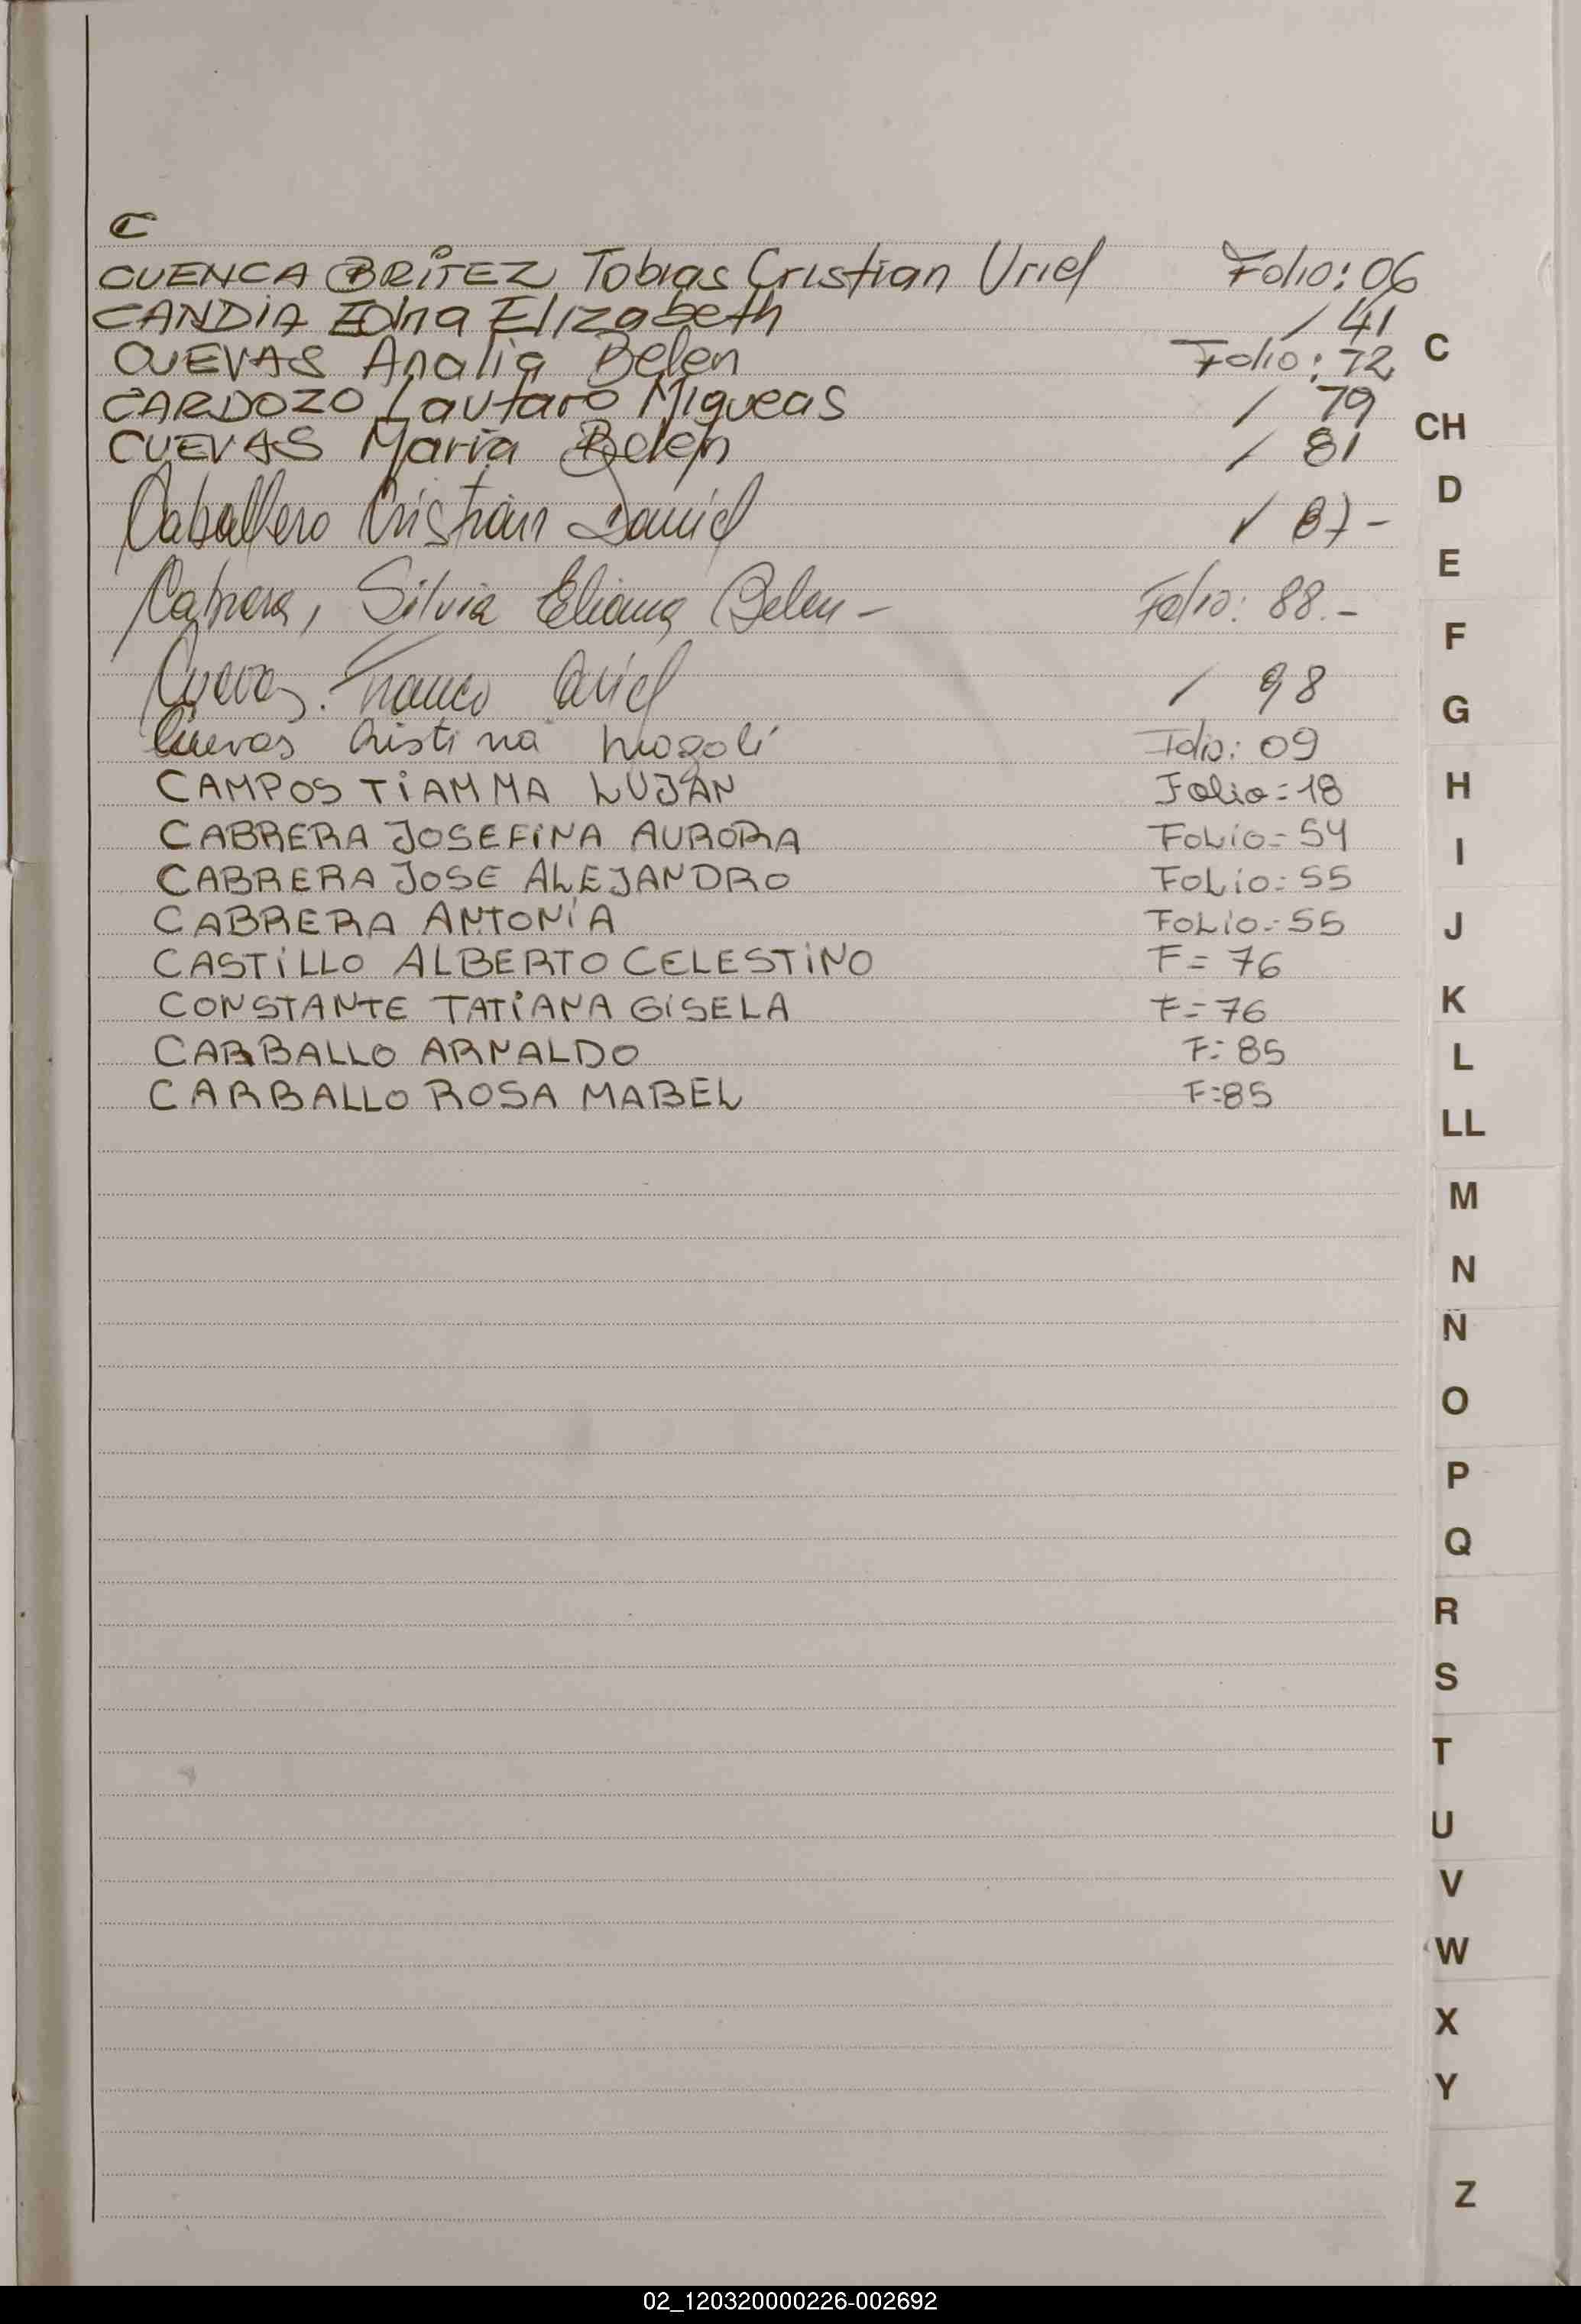 C
CUENCA BRITEZ Tobias Cristian Uriel Folio: 06
CANDIA Edna Elizabeth / 41
CUEVAS Analia Belen Folio: 72
CARDOZO Lautaro Miqueas / 79
CUEVAS Maria Belen / 81
Caballero Cristian Daniel / 87-
Cabrera, Silvia Eliana Belen - Folio: 88.-
Cuevas. Franco Ariel / 98
Cuevas Cristina Magali Folio: 09
CAMPOS TIAMMA LUJAN Folio = 18
CABRERA JOSEFINA AURORA FOLIO = 54
CABRERA JOSE ALEJANDRO FOLIO = 55
CABRERA ANTONIA FOLIO = 55
CASTILLO ALBERTO CELESTINO F = 76
CONSTANTE TATIANA GISELA F = 76
CARBALLO ARNALDO F = 85
CARBALLO ROSA MABEL F = 85
C
CH
D
E
F
G
H
I
J
K
L
LL
M
N
Ñ
O
P
Q
R
S
T
U
V
W
X
Y
Z
02_120320000226-002692